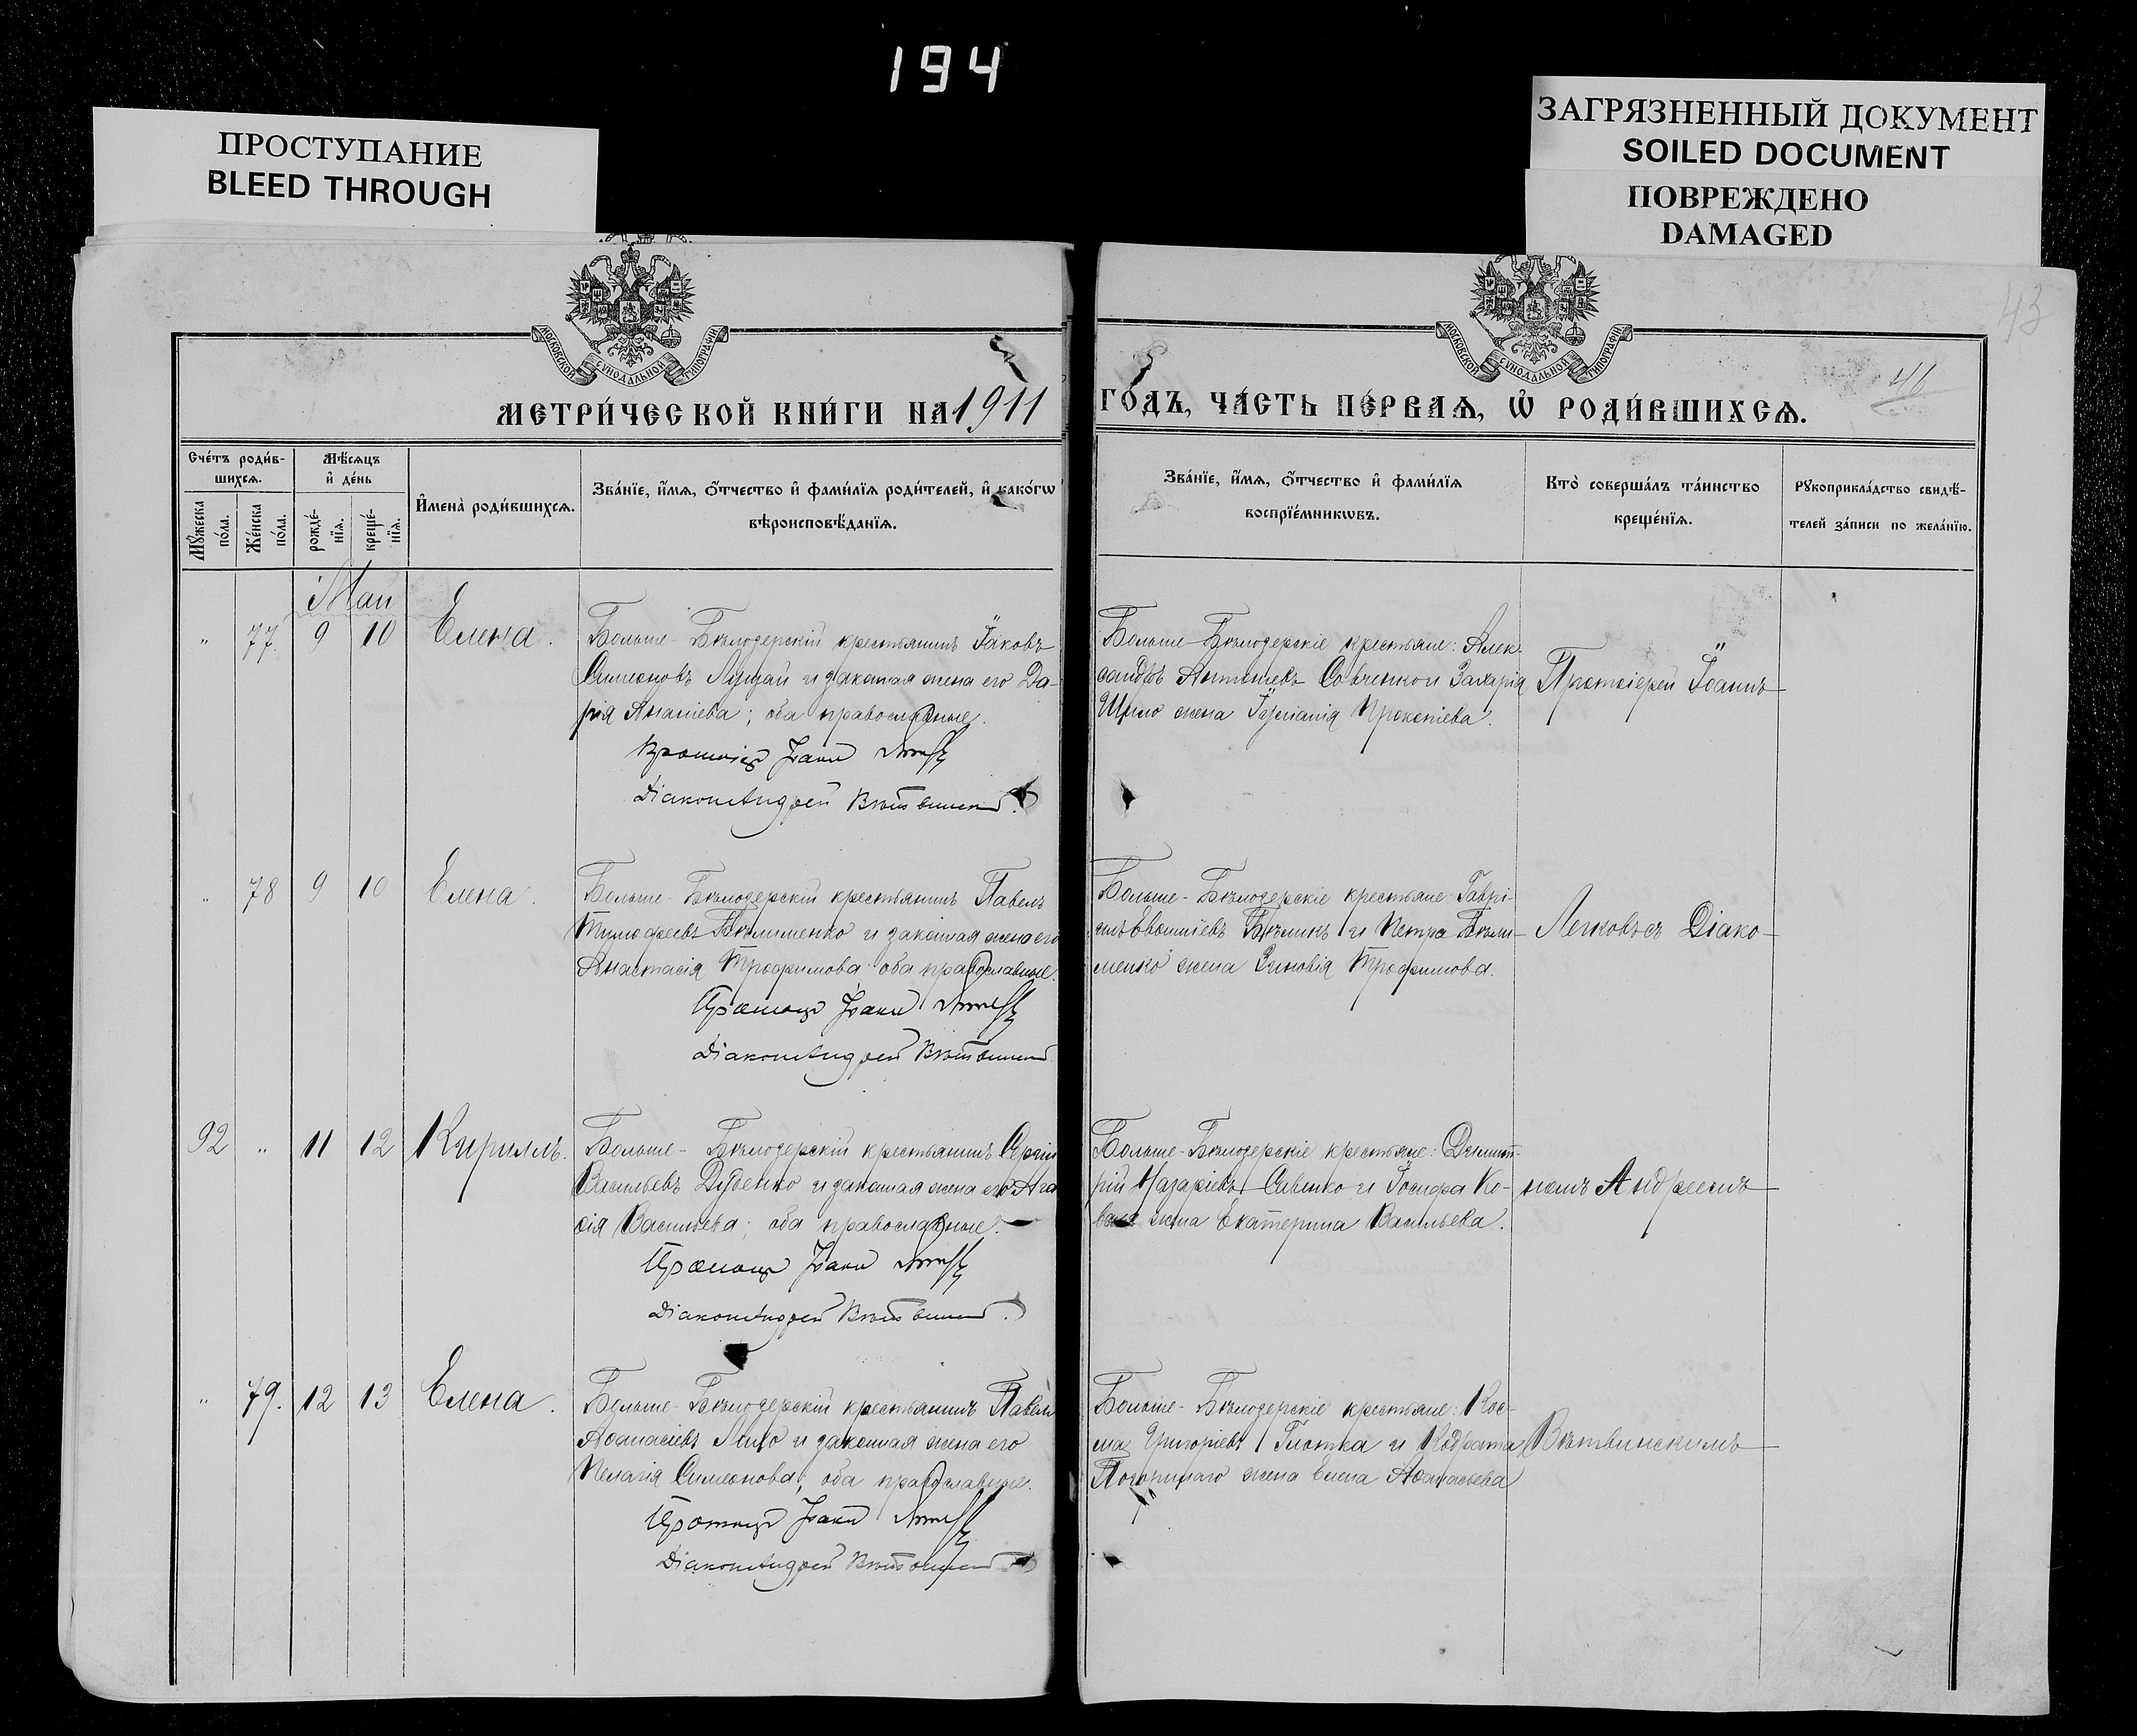 194
ПРОСТУПАНИЕ
BLEED THROUGH
ЗАГРЯЗНЕННЫЙ ДОКУМЕНТ
SOILED DOCUMENT
ПОВРЕЖДЕНО
DAMAGED
43
46
МОСКОВСКОЙ СѴНОДАЛЬНОЙ ТИПОГРАФІИ
МОСКОВСКОЙ СѴНОДАЛЬНОЙ ТИПОГРАФІИ
МЕТРИ́ЧЕСКОЙ КНИ́ГИ НА 1911
ГО́ДЪ, ЧА́СТЬ ПЕ́РВАѦ, Ѽ РОДИ́ВШИХСѦ.
Сче́тъ роди́в-
шихсѧ.
Мꙋ́жеска по́ла.
Же́нска по́ла.
Мѣ́сѧцъ
и҆ де́нь
рожде́-
нїѧ.
креще́-
нїѧ.
И҆мена̀ роди́вшихсѧ.
Зва́нїе, и҆́мѧ, ѻ҆́тчество и҆ фами́лїѧ роди́телей, и҆ како́гѡ
вѣроисповѣ́данїѧ.
Зва́нїе, и҆́мѧ, ѻ҆́тчество и҆ фами́лїѧ
воспрїе́мникѡвъ.
Кто̀ соверша́лъ та́инство
креще́нїѧ.
Рꙋкоприкла́дство свидѣ́-
телей за́писи по жела́нїю.
Май
" 77 9 10 Елена.
Больше-Бѣлозерскій крестьянинъ Іаковъ
Симеоновъ Луцай и законная жена его Да-
рія Ананіева; оба православные.
Протоіер Іоаннъ
Діаконъ Андрей Вѣтвинскій.
Больше-Бѣлозерскіе крестьяне: Алек-
сандръ Антоніевъ Совченко и Захарія
Шило жена Іуліанія Прокопіева.
Протоіерей Іоаннъ
" 78 9 10 Елена.
Больше-Бѣлозерскій крестьянинъ Павелъ
Тимофеевъ Бѣлименко и законная жена его
Анастасія Трофимова оба православные.
Протоіер Іоаннъ
Діаконъ Андрей Вѣтвинскій
Больше-Бѣлозерскіе крестьяне: Гаврі-
илъ Евфиміевъ Бѣликъ и Петра Бѣли-
менко жена Зиновія Трофимова.
Легковъ съ Діако-
92 " 11 12 Кириллъ.
Больше-Бѣлозерскій крестьянинъ Сергій
Васильевъ Дубенко и законная жена его Ага-
ѳія Васильева; оба православные.
Протоіер Іоаннъ
Діаконъ Андрей Вѣтвинскій.
Больше-Бѣлозерскіе крестьяне: Димит-
рій Назаріевъ Сивенко и Іосифа Ко-
валя жена Екатерина Васильева.
номъ Андреемъ
" 79. 12 13 Елена.
Больше-Бѣлозерскій крестьянинъ Павелъ
Аѳанасіевъ и законная жена его
Пелагія Симеонова; оба православные.
Протоіер Іоаннъ
Діаконъ Андрей Вѣтвинскій
Больше-Бѣлозерскіе крестьяне: Кос-
ма Григоріевъ Глотка и Кодрата
Погорилаго жена Елена Аѳанасьева
Вѣтвинскимъ